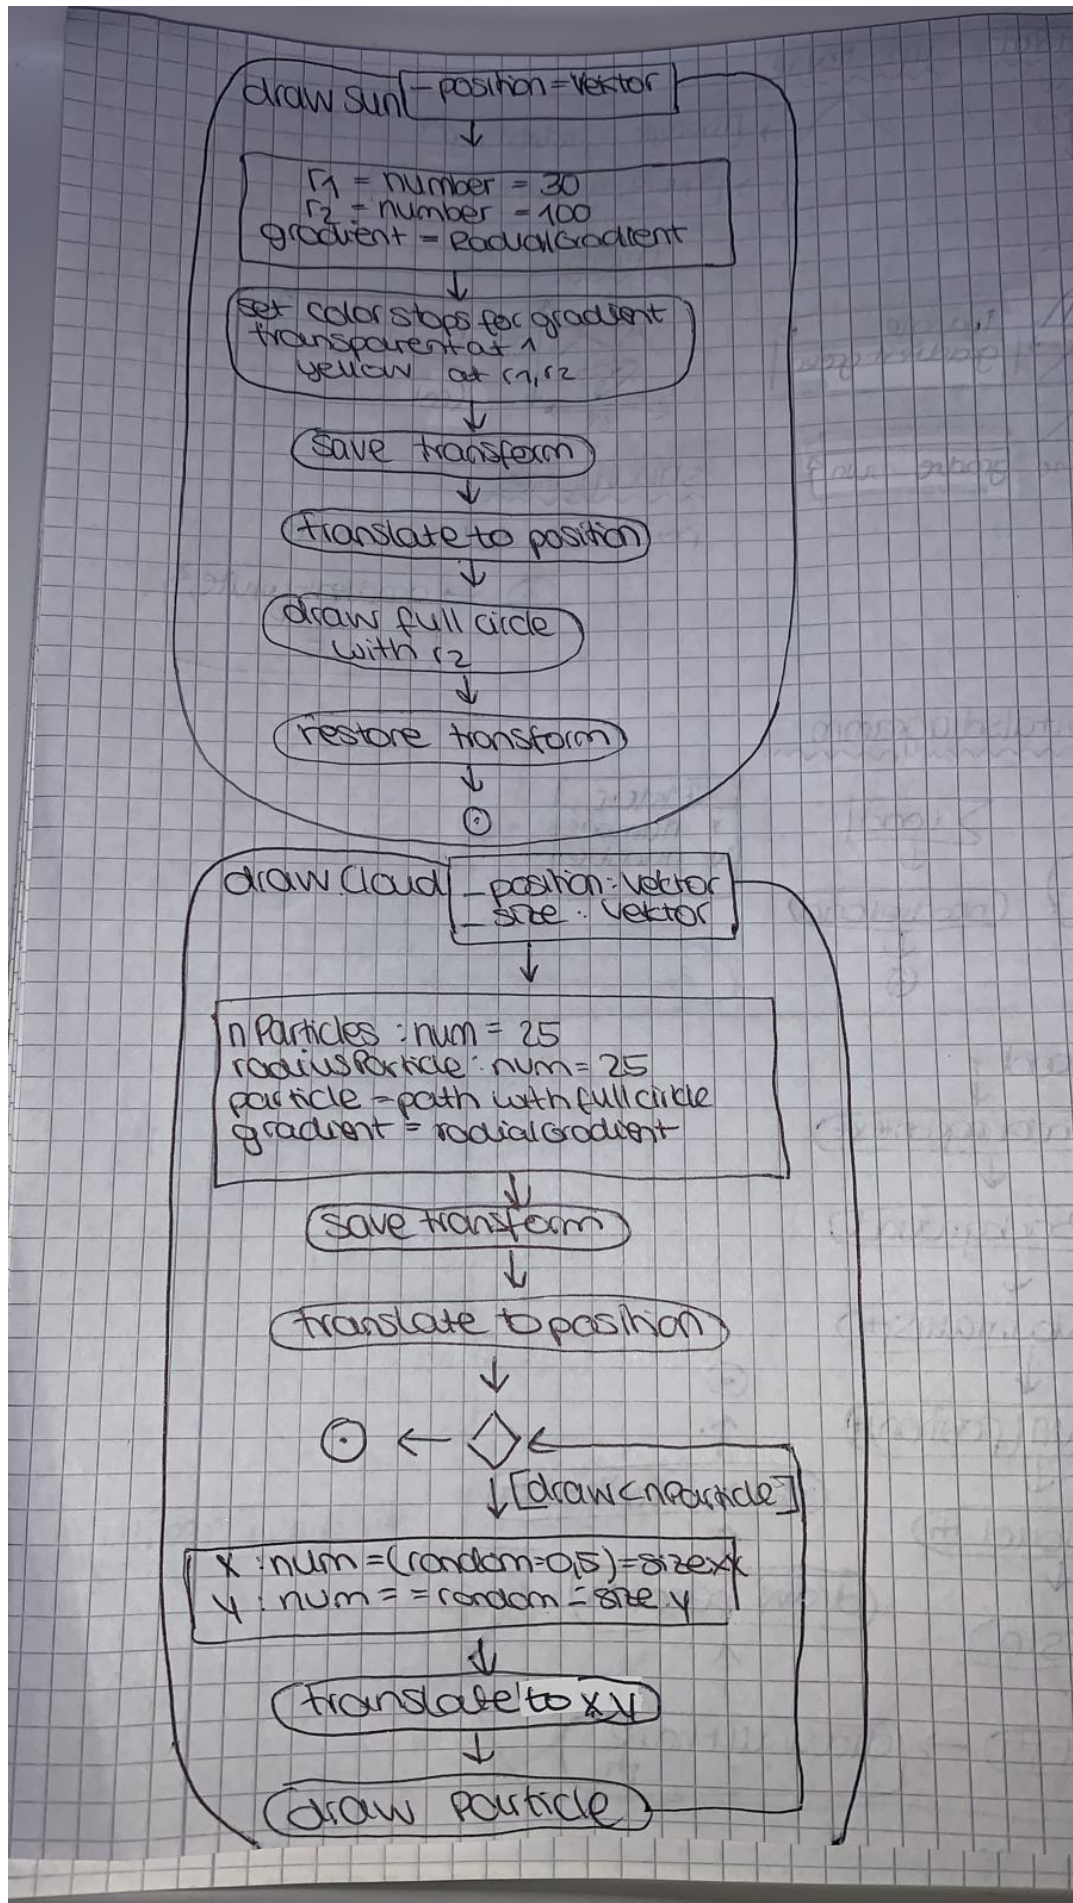 draw sun
-position=Vektor
r1 = number = 30
r2 = number = 100
gradient = RadialGradient
set colorstops for gradient
transparent at 1
yellow at r1,r2
save transform
translate to position
draw full circle
with r2
restore transform
draw Cloud
-position:Vektor
-size : Vektor
nParticles : num = 25
radiusParticle : num = 25
particle = path with full circle
gradient = radialGradient
save transform
translate to position
[draw<nParticle]
X : num =(random=0,5)=size.x
y : num = =random =size.y
translate to x y
draw particle